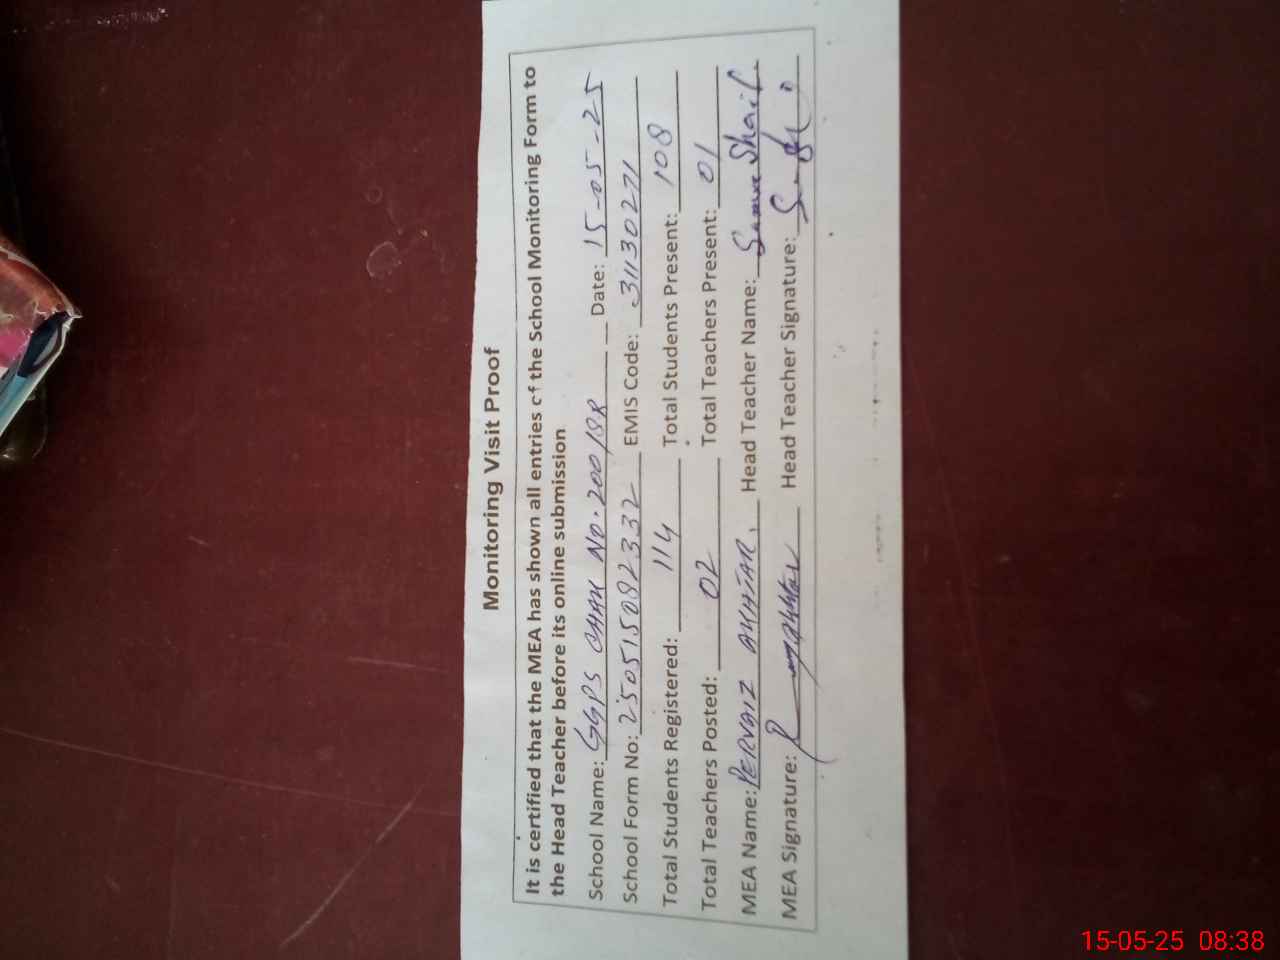 Monitoring Visit Proof
It is certified that the MEA has shown all entries of the School Monitoring Form to
the Head Teacher before its online submission
School Name: GGPS CHAK NO. 200/8R Date: 15-05-25
School Form No: 250515082332 EMIS Code: 31130271
Total Students Registered: 114 Total Students Present: 108
Total Teachers Posted: 02 Total Teachers Present: 01
MEA Name: PERVAIZ AKHTAR Head Teacher Name:
MEA Signature: Head Teacher Signature:
15-05-25 08:38